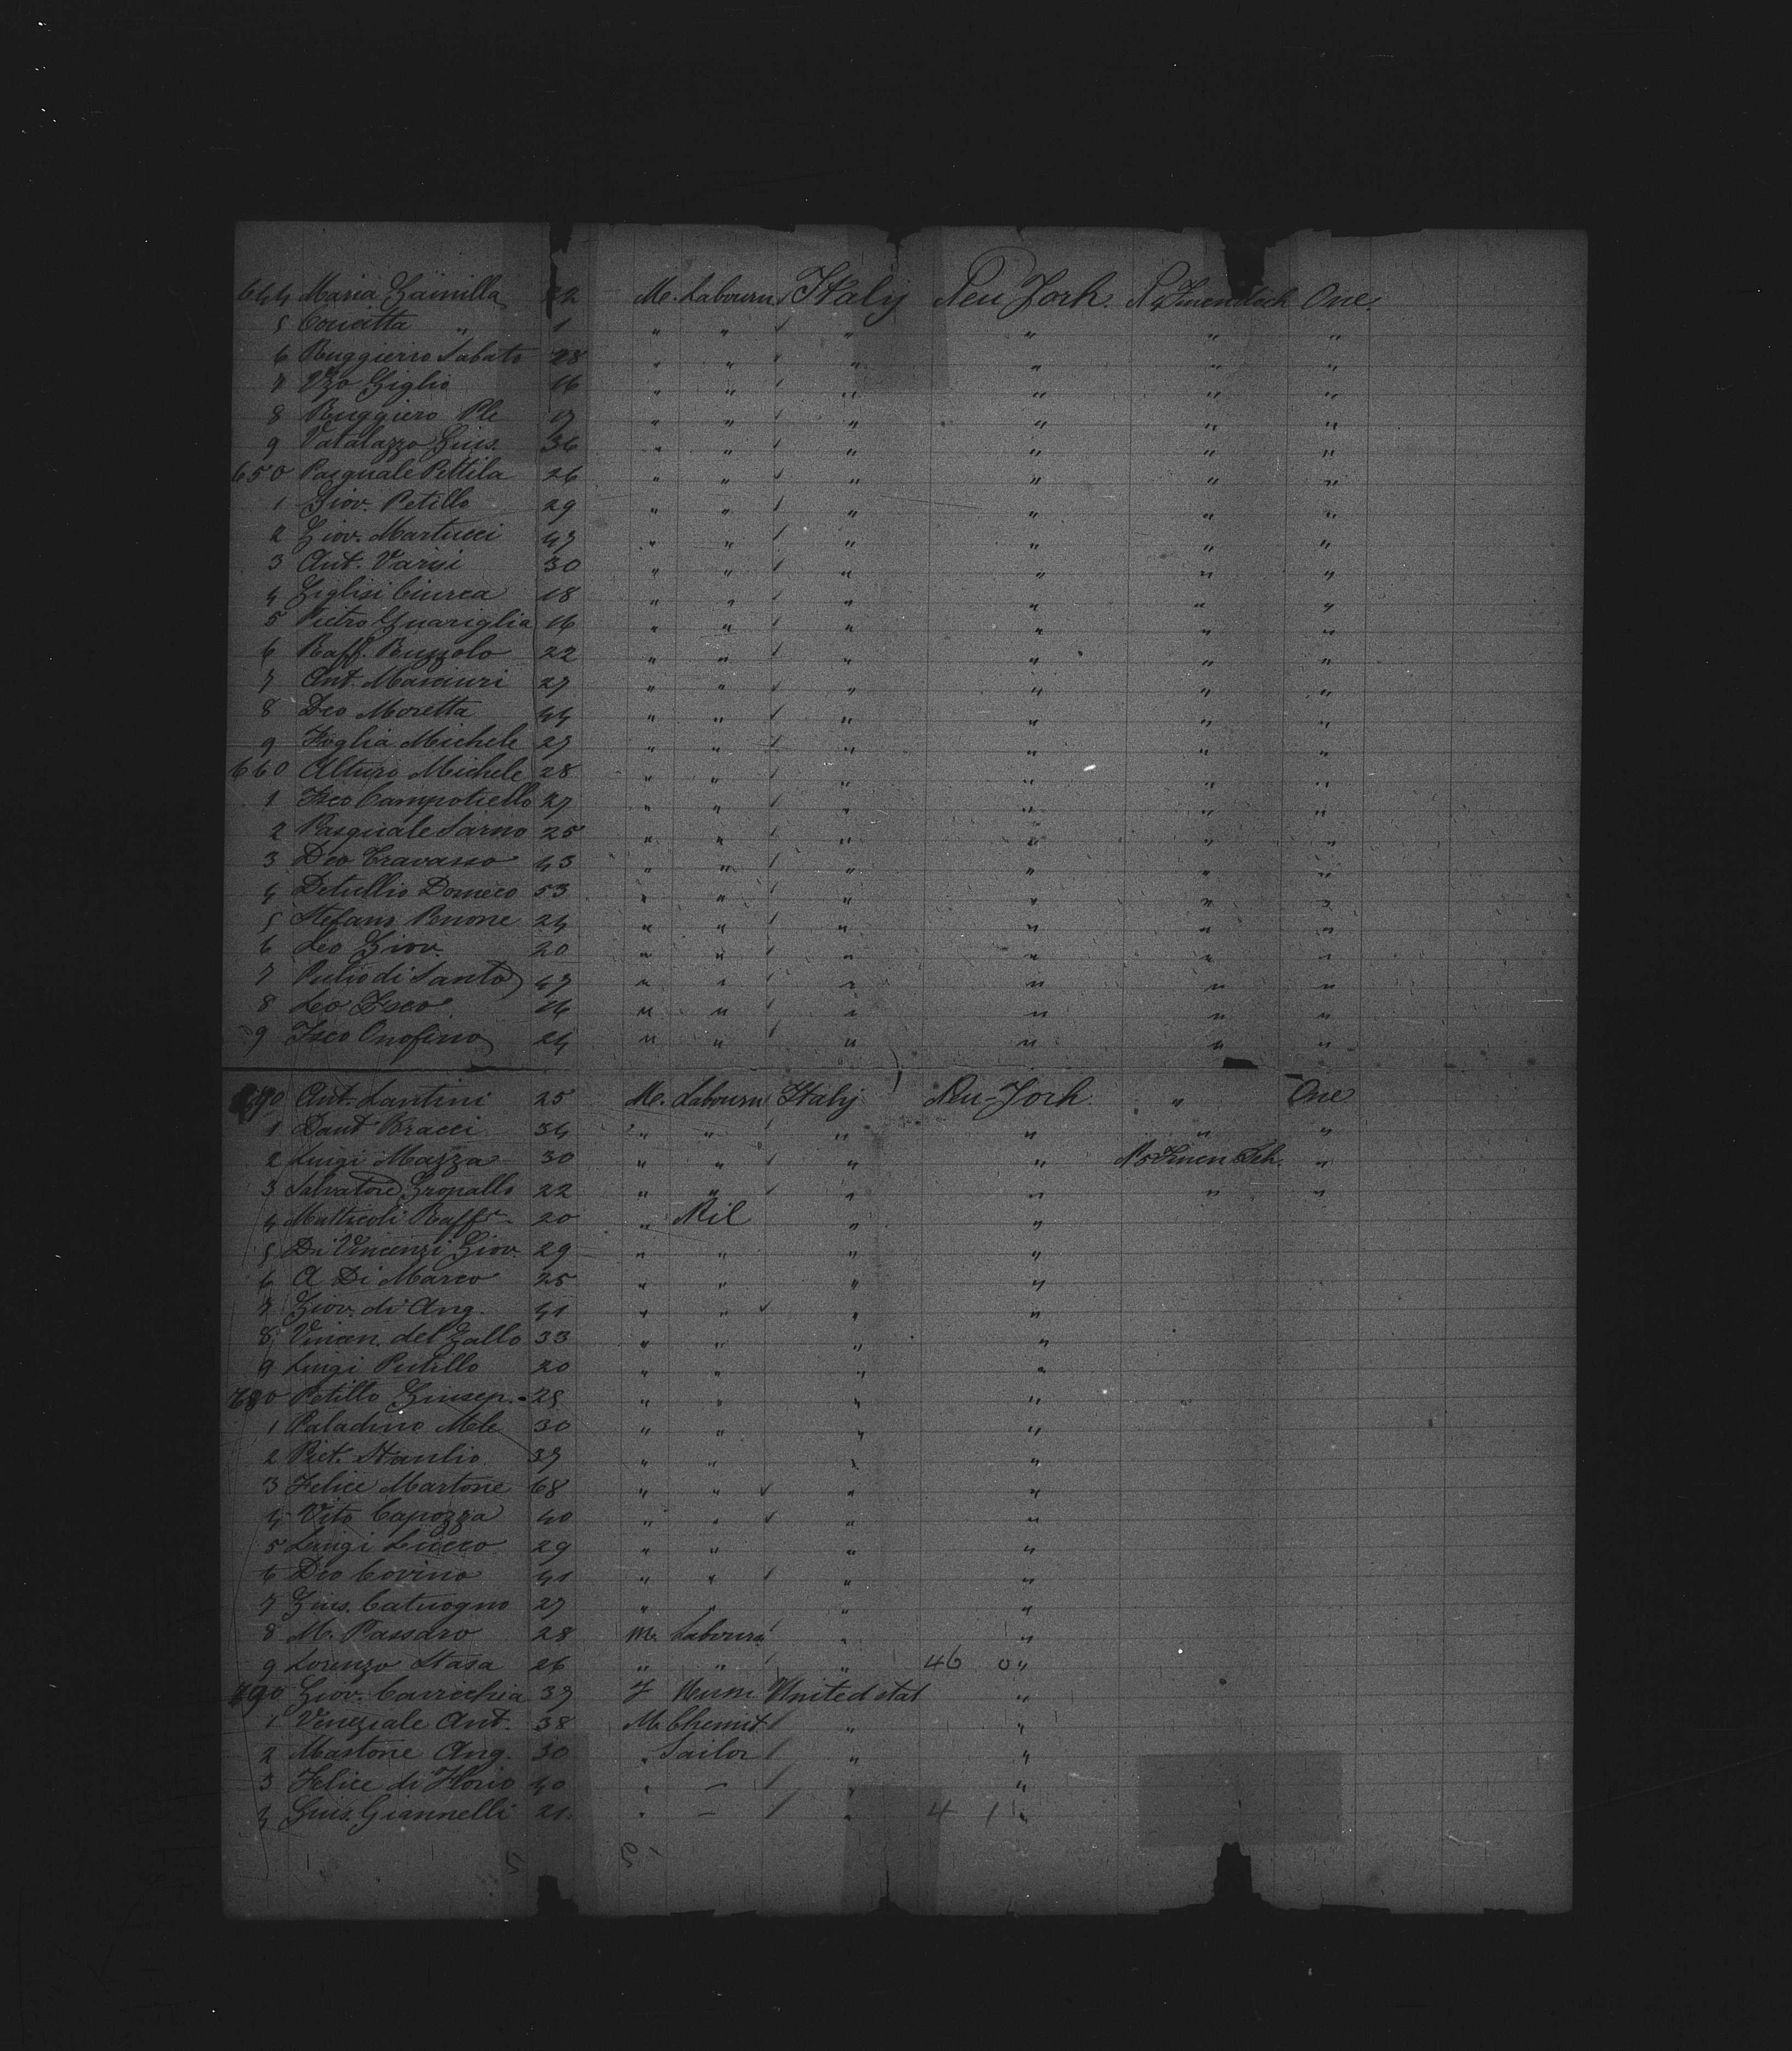 644 Maria 22 M. Labourn Italy Neu York One.
5 Concetta " 1 " " " " " "
6 Ruggierro Sabato 28 " " " " " "
7 Vzo Giglio 16 " " " " " "
8 Ruggiero Ple 17 " " " " " "
9 Valalazzo Gius. 36 " " " " " "
650 Pasquale Pettila 26 " " " " " "
1 Giov. Petillo 29 " " " " " "
2 Giov. Martucci 47 " " " " " "
3 Ant. Varsi 30 " " " " " "
4 Giglisi Ciurca 18 " " " " " "
5 Pietro Guariglia 16 " " " " " "
6 Raff. Ruzzolo 22 " " " " " "
7 Ant. Maiciuri 27 " " " " " "
8 Deo Moretta 44 " " " " " "
9 Foglia Michele 27 " " " " " "
660 Alturo Michele 28 " " " " " "
1 Fsco Campotiello 27 " " " " " "
2 Pasquale Sarno 25 " " " " " "
3 Deo Cravasso 43 " " " " " "
4 Detullio Domeco 53 " " " " " "
5 Stefano Penone 24 " " " " " "
6 Leo Giov. 20 " " " " " "
7 di Santo 47 " " " " " "
8 Leo Fsco 16 " " " " " "
9 Fsco Onofrino 24 " " " " " "
Ant. Lantini 25 M. Labourn Italy Neu-York " One
1 Dant Bracci 34 " " " " " "
2 Luigi Mazza 30 " " " " "
3 Salvatore Gropallo 22 " " " " " "
4 Matticoli Raff. 20 " Nil " "
5 De Vincenzi Giov. 29 " " " "
6 A Di Marco 25 " " " "
7 Giov. di Ang. 41 " " " "
8 Vincen. del Gallo 33 " " " "
9 Luigi Petrillo 20 " " " "
680 Petillo Giusep. 28 " " " "
1 Paladino Mele 30 " " " "
2 Piet. Stanlio 37 " " " "
3 Felice Martone 68 " " " "
4 Vito Capozza 40 " " " "
5 Luigi Lucco 29 " " " "
6 Deo Covino 41 " " " "
7 Gius. Catuogno 27 " " " "
8 M. Passaro 28 M. Labourn " "
9 Lorenzo Stasa 26 " " " 46 0 "
690 Giov. Cavicchia 37 F United stat "
1 Veneziale Ant. 38 M. Chemist " "
2 Mastone Ang. 30 " Sailor " "
3 Felice di Florio 40 " – " "
4 Gius. Giannelli 21 " – " 4 1 "